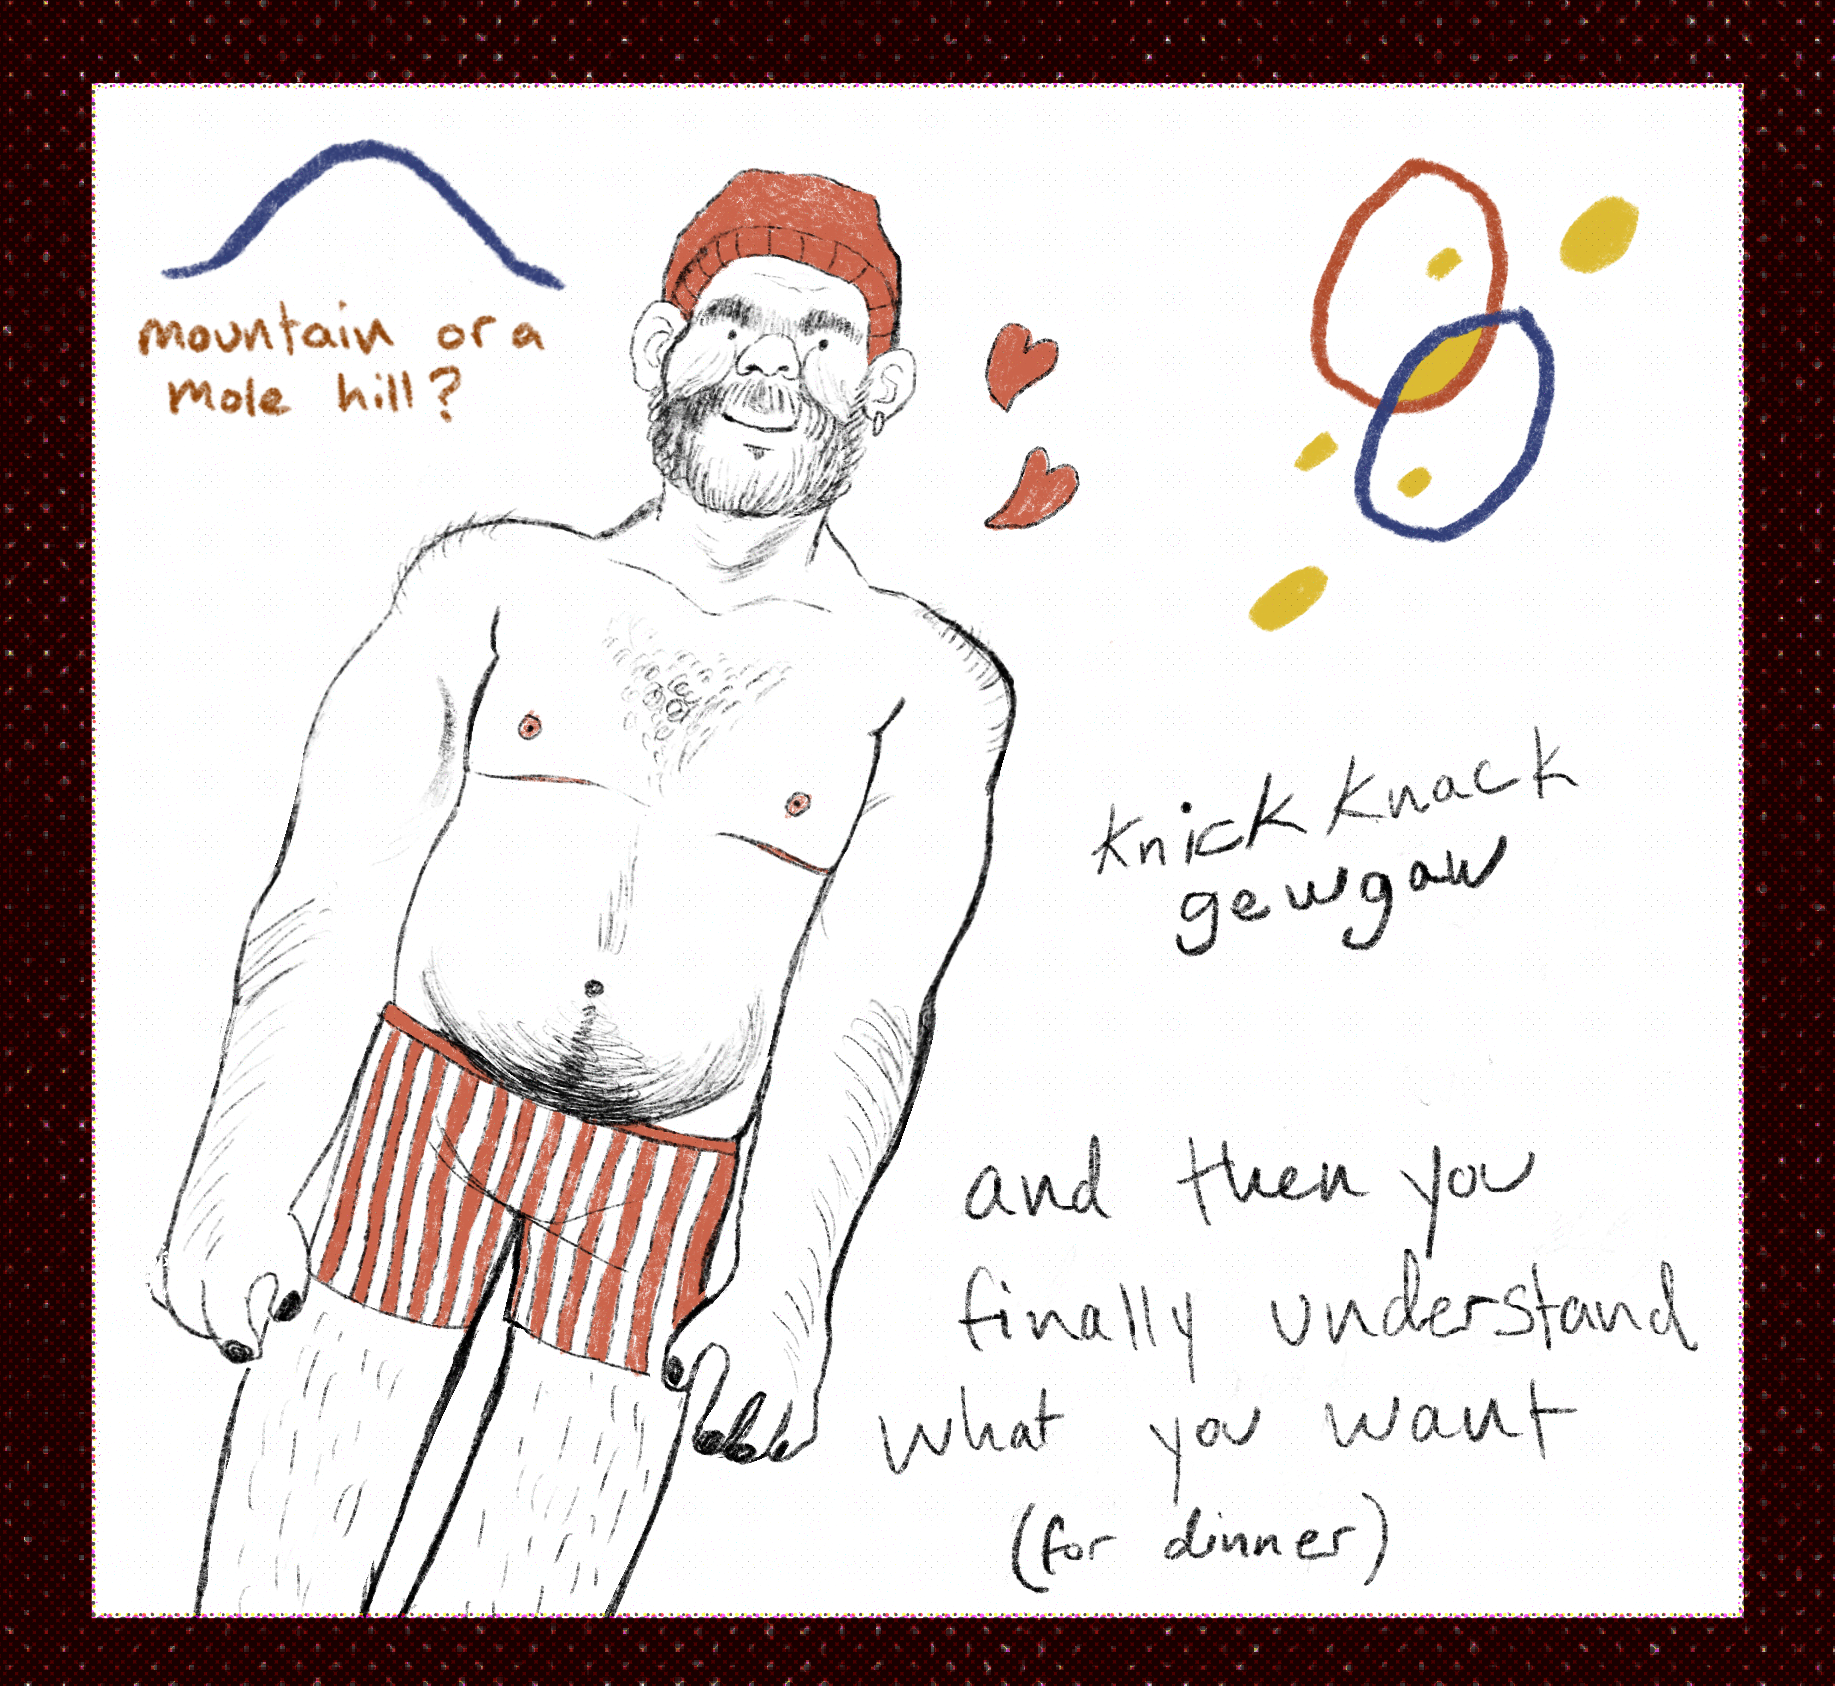 mountain or a
mole hill?
knick knack
gewgaw
and then you
finally understand
what you want
(for dinner)